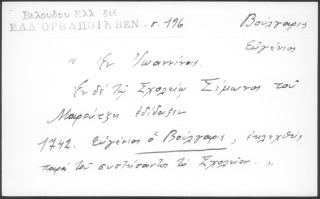 Βελουδου Ελλ διδ
ΕΛΛ ΟΡΘ ΑΠΟΙΑ ΒΕΝ. σ. 196
Βούλγαρις
Εὐγένιος
" Ἐν Ἰωαννίνοις.
Ἐν δὲ τῷ Σχολείῳ Σίμωνος τοῦ
Μαρούτζη ἐδίδαξεν
1742. Εὐγένιος ὁ Βούλγαρις, ἐκλεχθεὶς
παρὰ τοῦ συστήσαντος τὸ Σχολεῖον. "